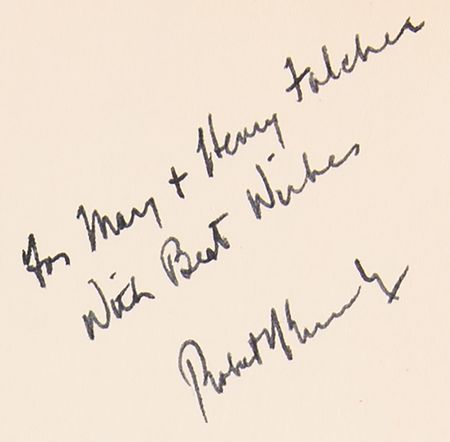 For Mary + Henry Falcher
With Best Wishes
Robert Kennedy